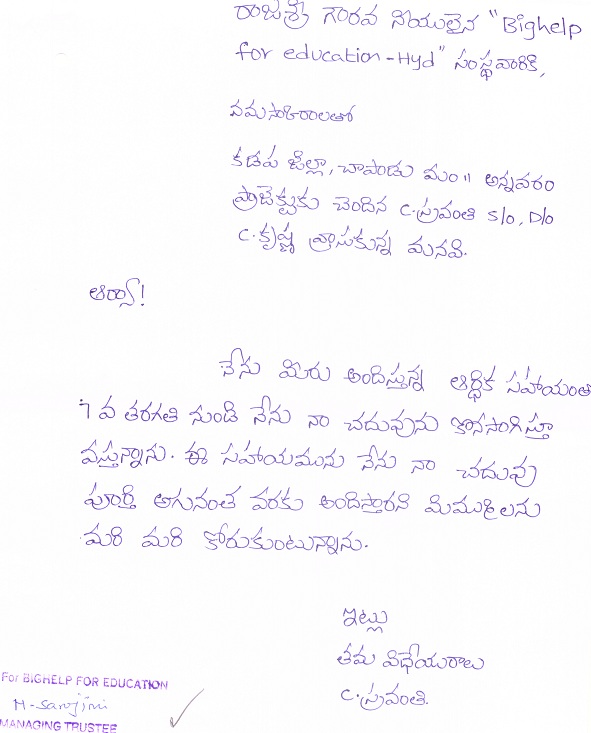 రాజశ్రీ గౌరవ నీయులైన "Bighelp
for education-Hyd" సంస్థవారికి,
నమసాకారాలతో
కడప జిల్లా, చాపాడు మం॥ అన్నవరం
ప్రాజెక్టుకు చెందిన C.ప్రవంతి S/o, D/o
C.కృష్ణ వ్రాసుకున్న మనవి.
ఆర్యా!
నేను మీరు అందిస్తున్న ఆర్ధిక సహాయంతో
7 వ తరగతి నుండి నేను నా చదువును కొనసాగిస్తూ
వస్తున్నాను. ఈ సహాయమును నేను నా చదువు
పూర్తి అగునంత వరకు అందిస్తారని మిముల్లను
మరి మరి కోరుకుంటున్నాను.
ఇట్లు
తమ విధేయురాలు
C.ప్రవంతి.
For BIGHELP FOR EDUCATION
M-Sarojini
MANAGING TRUSTEE